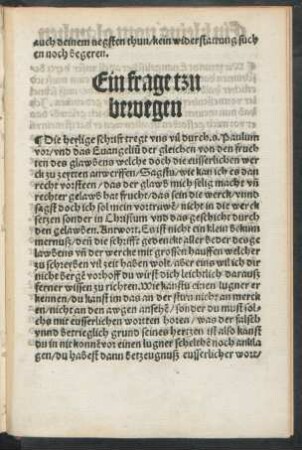 auch deinem negsten thun/kein widerstattung such
en noch begeren.
Ein frage tzu
bewegen
¶ Die heylige schrifft tregt vns vñ durch .s. Paulum
vor/vnd das Euangeliũ der gleichen von den fruch
ten des glawbens welche doch die eusserlichen wer
ck zu zeytten anweissen/Sagstu/wie kan ich es dan
recht vorsteen/das der glaub mich selig macht vñ
rechter gelawb hat fruchte/das sein die werck/vnd
sagst doch ich sol mein vortraw̃/nicht in die werck
setzen sonder in Christum vnd das geschicht durch
den gelawben. Antwort. Es ist nicht ein klein bekum
mernuß/deñ die schrifft gedenckt aller beder des ge
lawbens vñ der wercke mit grossen hauffen welche
zu schreyben vil zeit haben wolt. aber eins wil ich dir
nicht bergẽ vorhoff du wirst dich leichtlich darauß
ferner wissen zu richten. Wie kanstu einen lugner er
kennen/du kanst im das an der stirn nicht an merck
en/nicht an den awgen ansehẽ/sonder du must sol
chs mit eusserlichen wortten horen/was der falsch
vnd betrieglich grund seines hertzen ist also kanst
du in nit konnẽ vor einen lugner scheltẽ noch ankla
gen/du habest dann betzeugnuß eusserlicher wort/